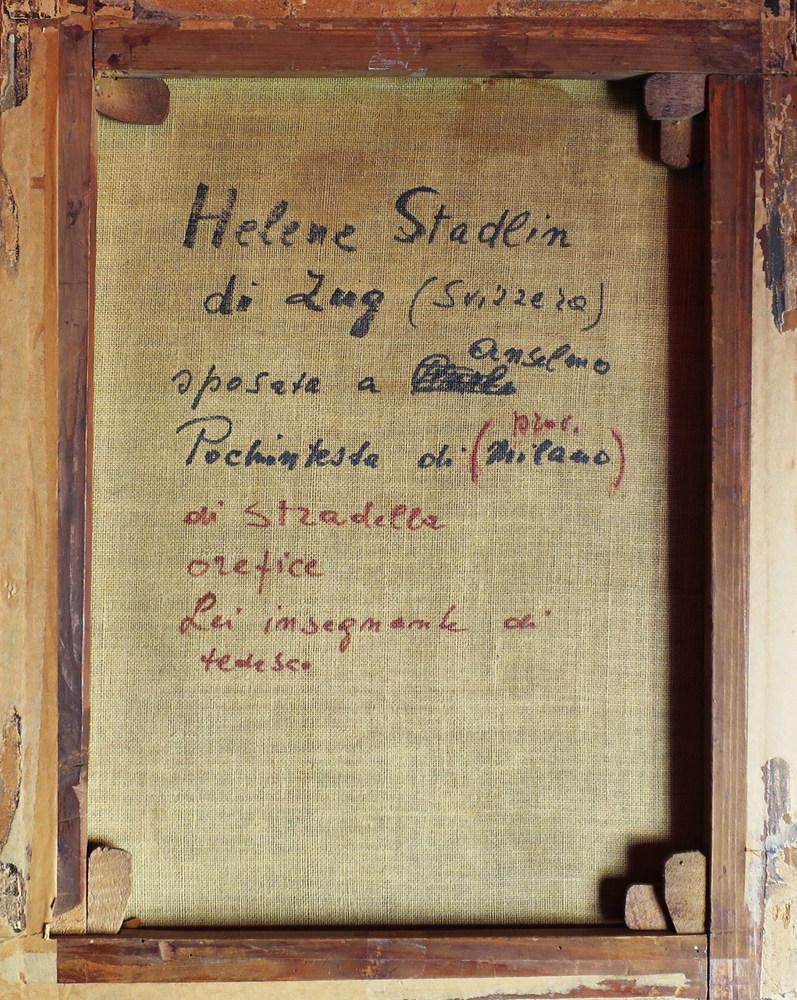 Helene Stadlin
di Zug (Svizzera)
sposata a Anselmo
Pochintesta di (prov. Milano)
di Stradella
orefice
Lei insegnante di
tedesco